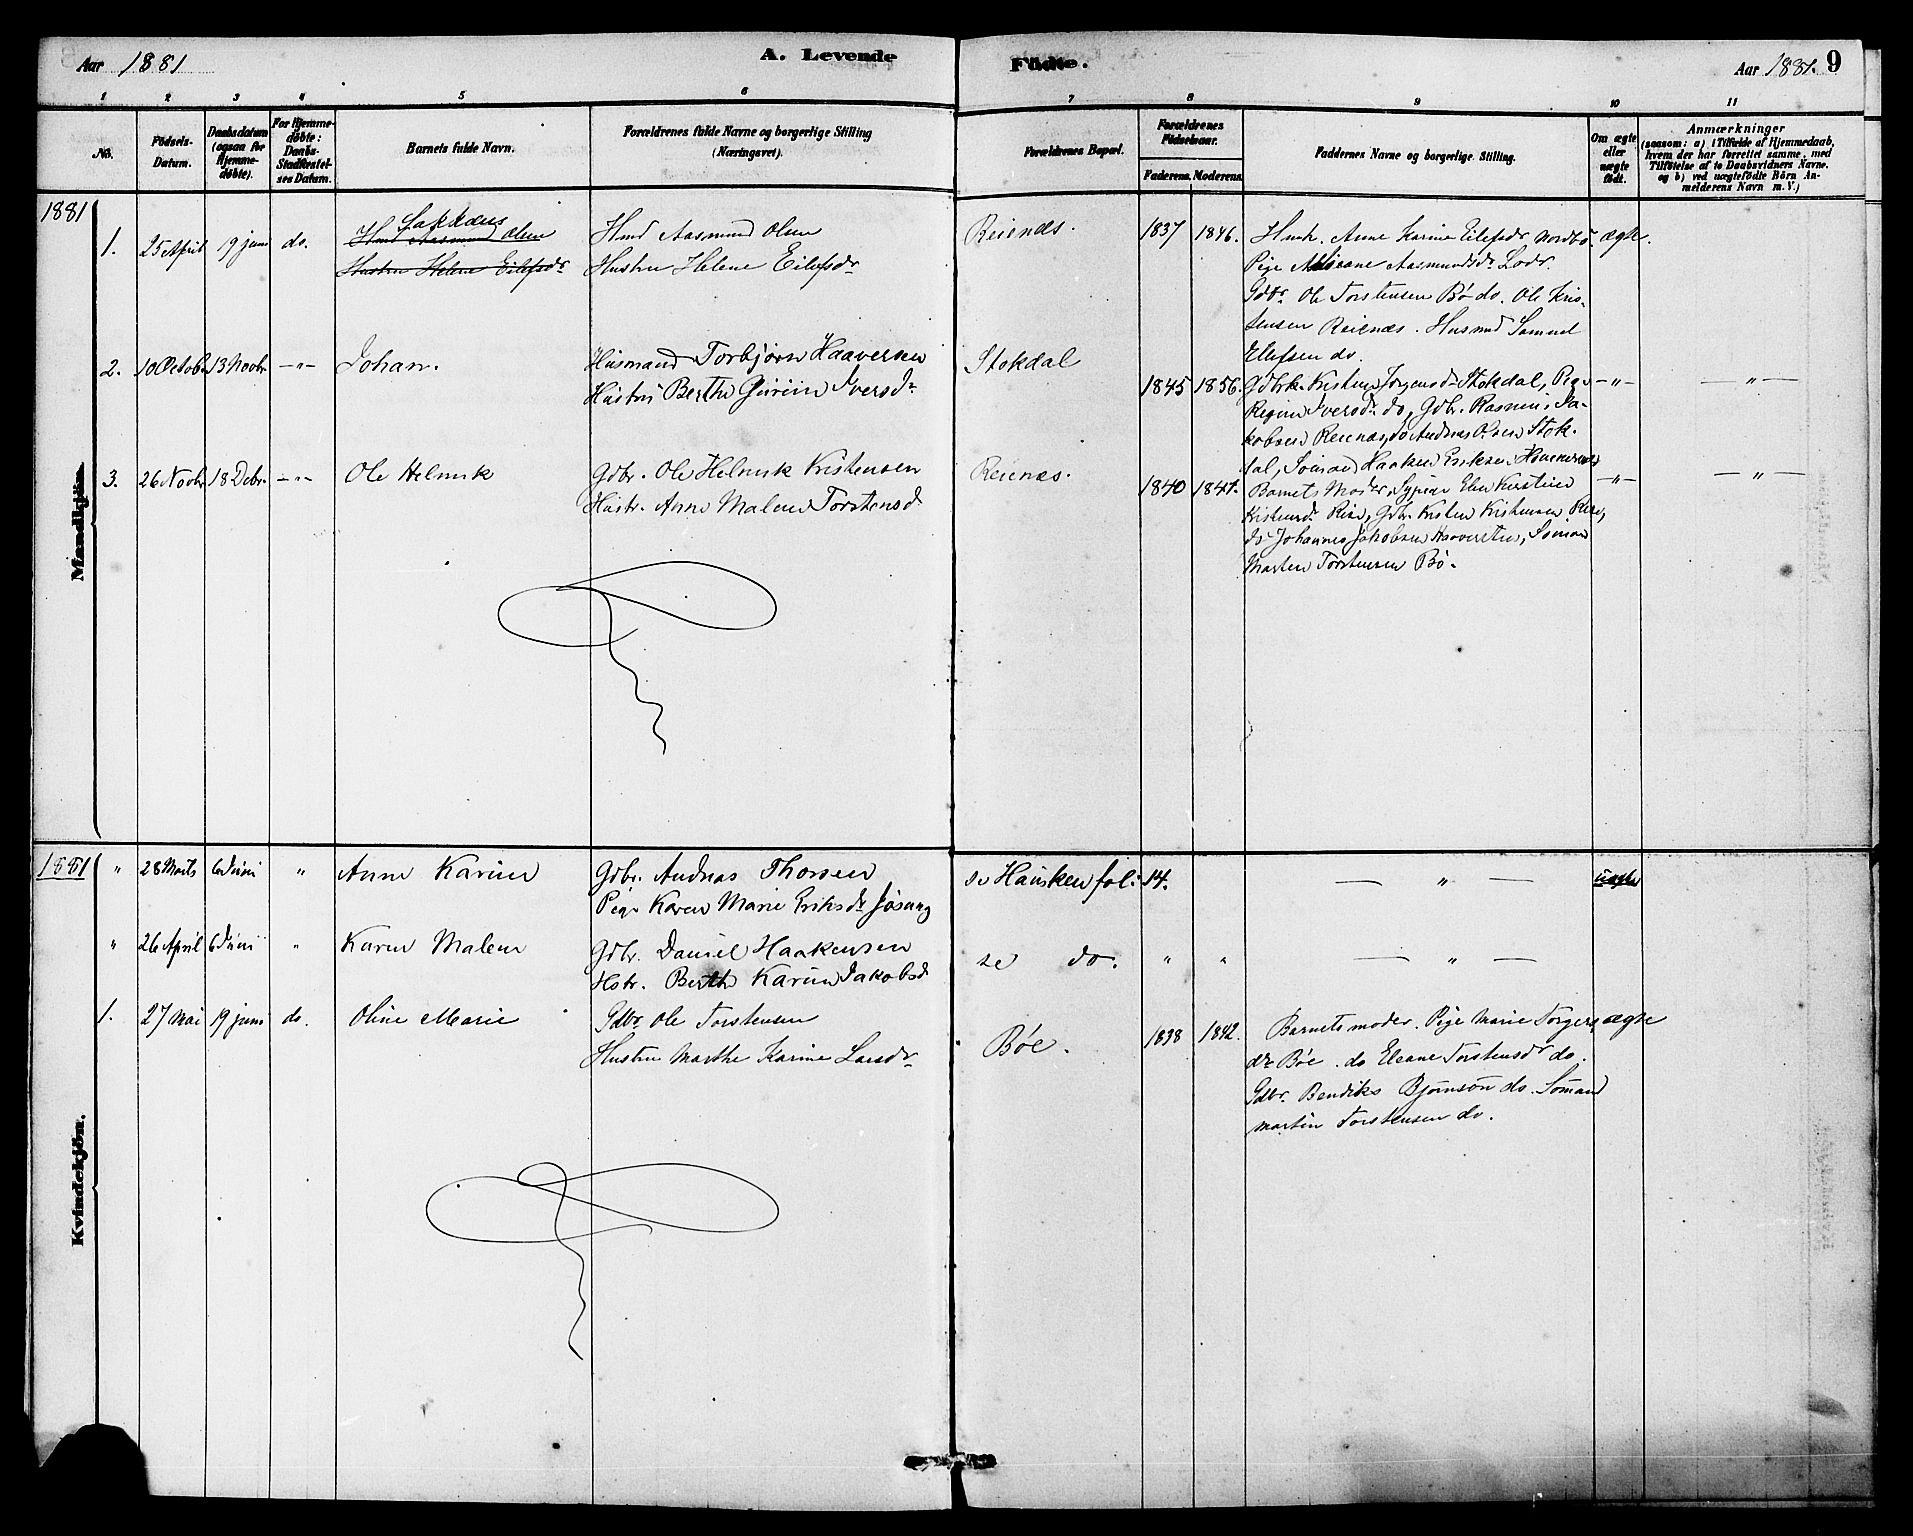 Aar 1881
A. Levende
Födte.
Aar 1881. 9
1 2 3 4 5 6 7 8 9 10 11
No.
Födsels-
Datum.
Daabsdatum
(ogsaa for
Hjemme-
döbte).
For Hjemme-
döbte:
Daabs-
Stadfæstel-
ses Datum.
Barnets fulde Navn.
Forældrenes fulde Navne og borgerlige Stilling
(Næringsvei).
Forældrenes Bopæl.
Forældrenes
Födselsaar.
Faderens. Moderens.
Faddernes Navne og borgerlige Stilling.
Om ægte
eller
uægte
födt.
Anmærkninger
(saasom: a) i Tilfælde af Hjemmedaab,
hvem der har forrettet samme, med
Tilföielse af to Daabsvidners Navne.
og b) ved uægtefödte Börn An-
melderens Navn m. V.)
1881
Mandkjön.
1. 25 April 19 juni do.
Hmd Aasmund Olsen
Hustru Helene Eilefsdr
Hmd Aasmund Olsen
Hustru Helene Eilefsdr
Reienæs. 1837 1846.
Hmk. Anne Karine Eilefsdr Nordbø ægte.
Pige Aasmundsdr Lodr.
Gdbr Ole Torstensen Bø do. Ole Kris-
tensen Reienæs. Husmd Samuel
Elefsen do.
2. 10 Octobr 13 Novbr. —"— Johan.
Husmand Torbjørn Haaversen
Hustru Berthe Gurine Iversdr
Stokdal 1845 1856.
Gdbrk. Kristine Jørgensdr Stokdal, Pige
Regine Iversdr do, Gdbr. Rasmus Ja-
kobsen Reienæs, do Andreas Olsen Stok-
dal, Sömand Haaken Eriksen
—"— —"—
3. 26 Novbr 18 Debr. —"— Ole Helmik
Gdbr. Ole Helmik Kristensen
Hustr. Anne Malene Torstensd
Reienæs. 1840 1847.
Barnets Moder, Sypige Elen Kirstine
Kristensdr Rise, Gdbr. Kristen Kristensen Rise,
do Johannes Jakobsen, Sömand
Martin Torstensen Bö.
—"— —"—
1881
Kvindekjön.
" 28 Marts 6 Juni " Anne Karine
Gdbr. Andreas Thorsen
Pige Karen Marie Eriksdr Jösung
se Hausken fol: 14. —"— uægte
" 26 April 6 Juni " Karen Malene
Gdbr. Daniel Haakensen
Hstr. Berthe Karine Jakobsd
se do. " " —"—
1. 27 Mai 19 juni do. Oline Marie
Gdbr Ole Torstensen
Hustru Marthe Karine Larsdr
Bøe. 1838 1842.
Barnets moder. Pige Marie Torgers ægte
dr Bøe. do Eleane Torstensdr do.
Gdbr. Bendiks Bjørnson do. Sömand
Martin Torstensen do.